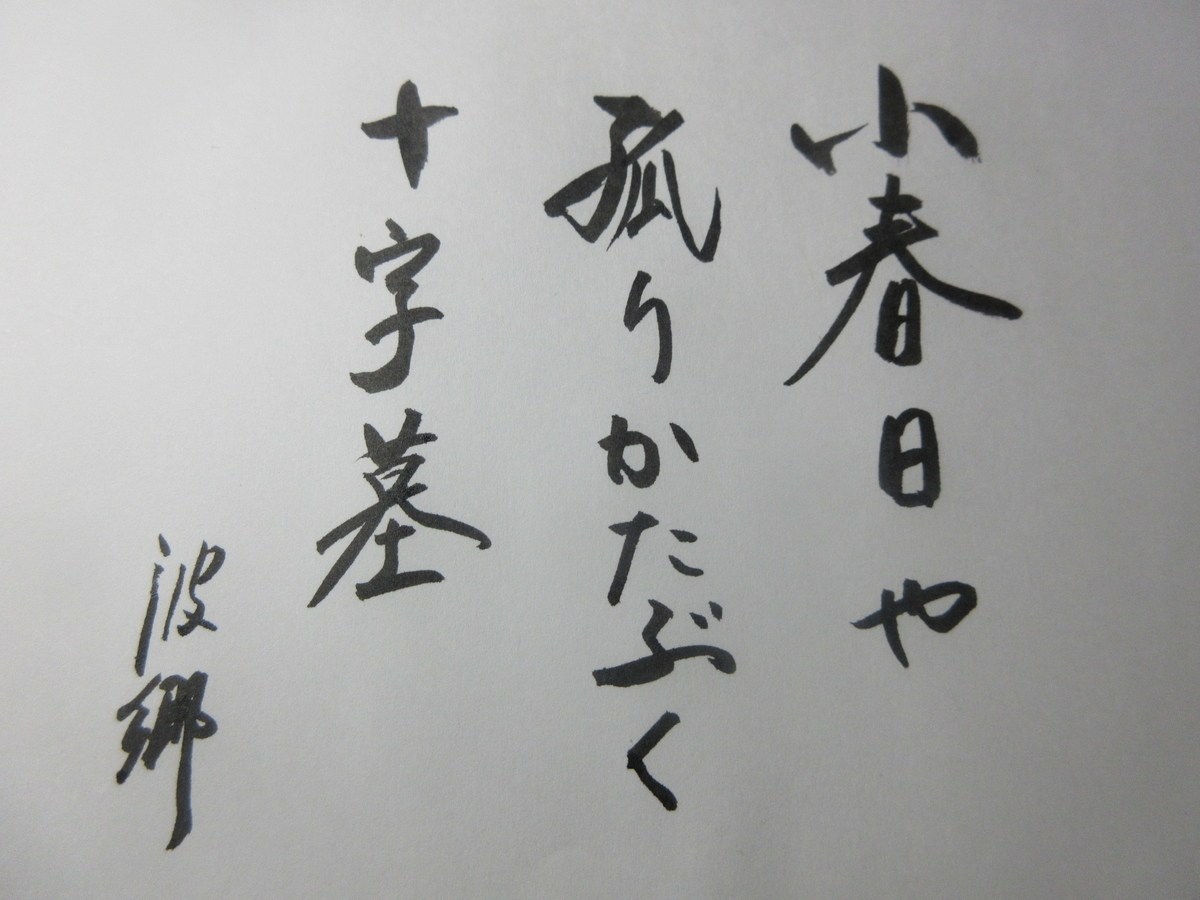 小春日や
孤りかたぶく
十字墓
波郷